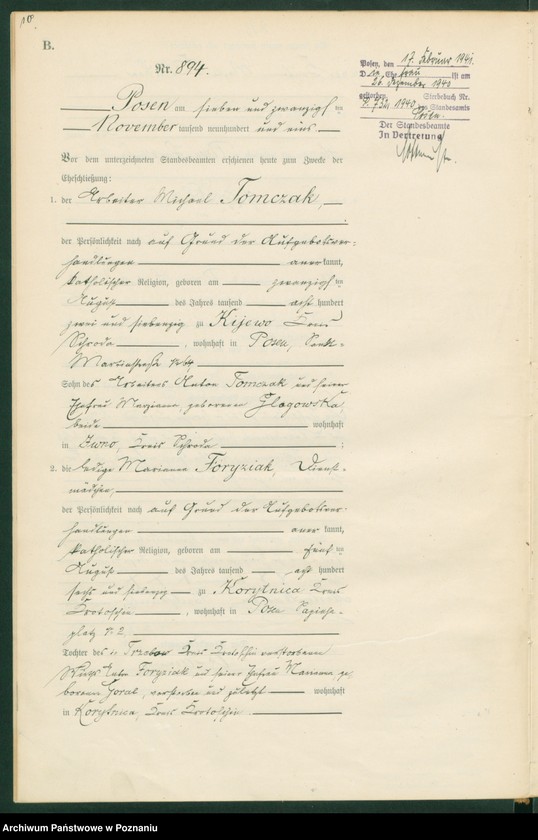 B.
Nr. 894.
Posen am sieben und zwanzigsten
November tausend neunhundert und eins
Vor dem unterzeichneten Standesbeamten erschienen heute zum Zwecke der
Eheschließung:
1. der Arbeiter Michael Tomczak,
der Persönlichkeit nach auf Grund der Aufgebotsver=
handlungen anerkannt,
katholischer Religion, geboren am zwanzigsten
August des Jahres tausend acht hundert
zwei und siebenzig zu Kijewo Kreis
Schroda, wohnhaft in Posen, Sankt=
Martinstraße
Sohn des Arbeiters Anton Tomczak und seiner
Ehefrau Marianna, geborenen Glogowska,
beide wohnhaft
in Iwno, Kreis Schroda;
2. die ledige Marianna Foryziak, Dienst=
mädchen,
der Persönlichkeit nach auf Grund der Aufgebotsver=
handlungen anerkannt,
katholischer Religion, geboren am fünften
August des Jahres tausend acht hundert
sechs und siebenzig zu Korytnica Kreis
Krotoschin, wohnhaft in Posen Sapieha=
platz N. 2,
Tochter des in Kreis Krotoschin verstorbenen
Anton Foryziak und seiner Ehefrau Marianna ge=
borenen, verstorben und zuletzt wohnhaft
in Korytnica, Kreis Krotoschin.
Posen, den 17. Februar 1941.
Die Ehefrau ist am
26. Dezember 1940
gestorben. Sterbebuch Nr.
1940 des Standesamts
Posen.
Der Standesbeamte
In Vertretung
Archiwum Państwowe w Poznaniu